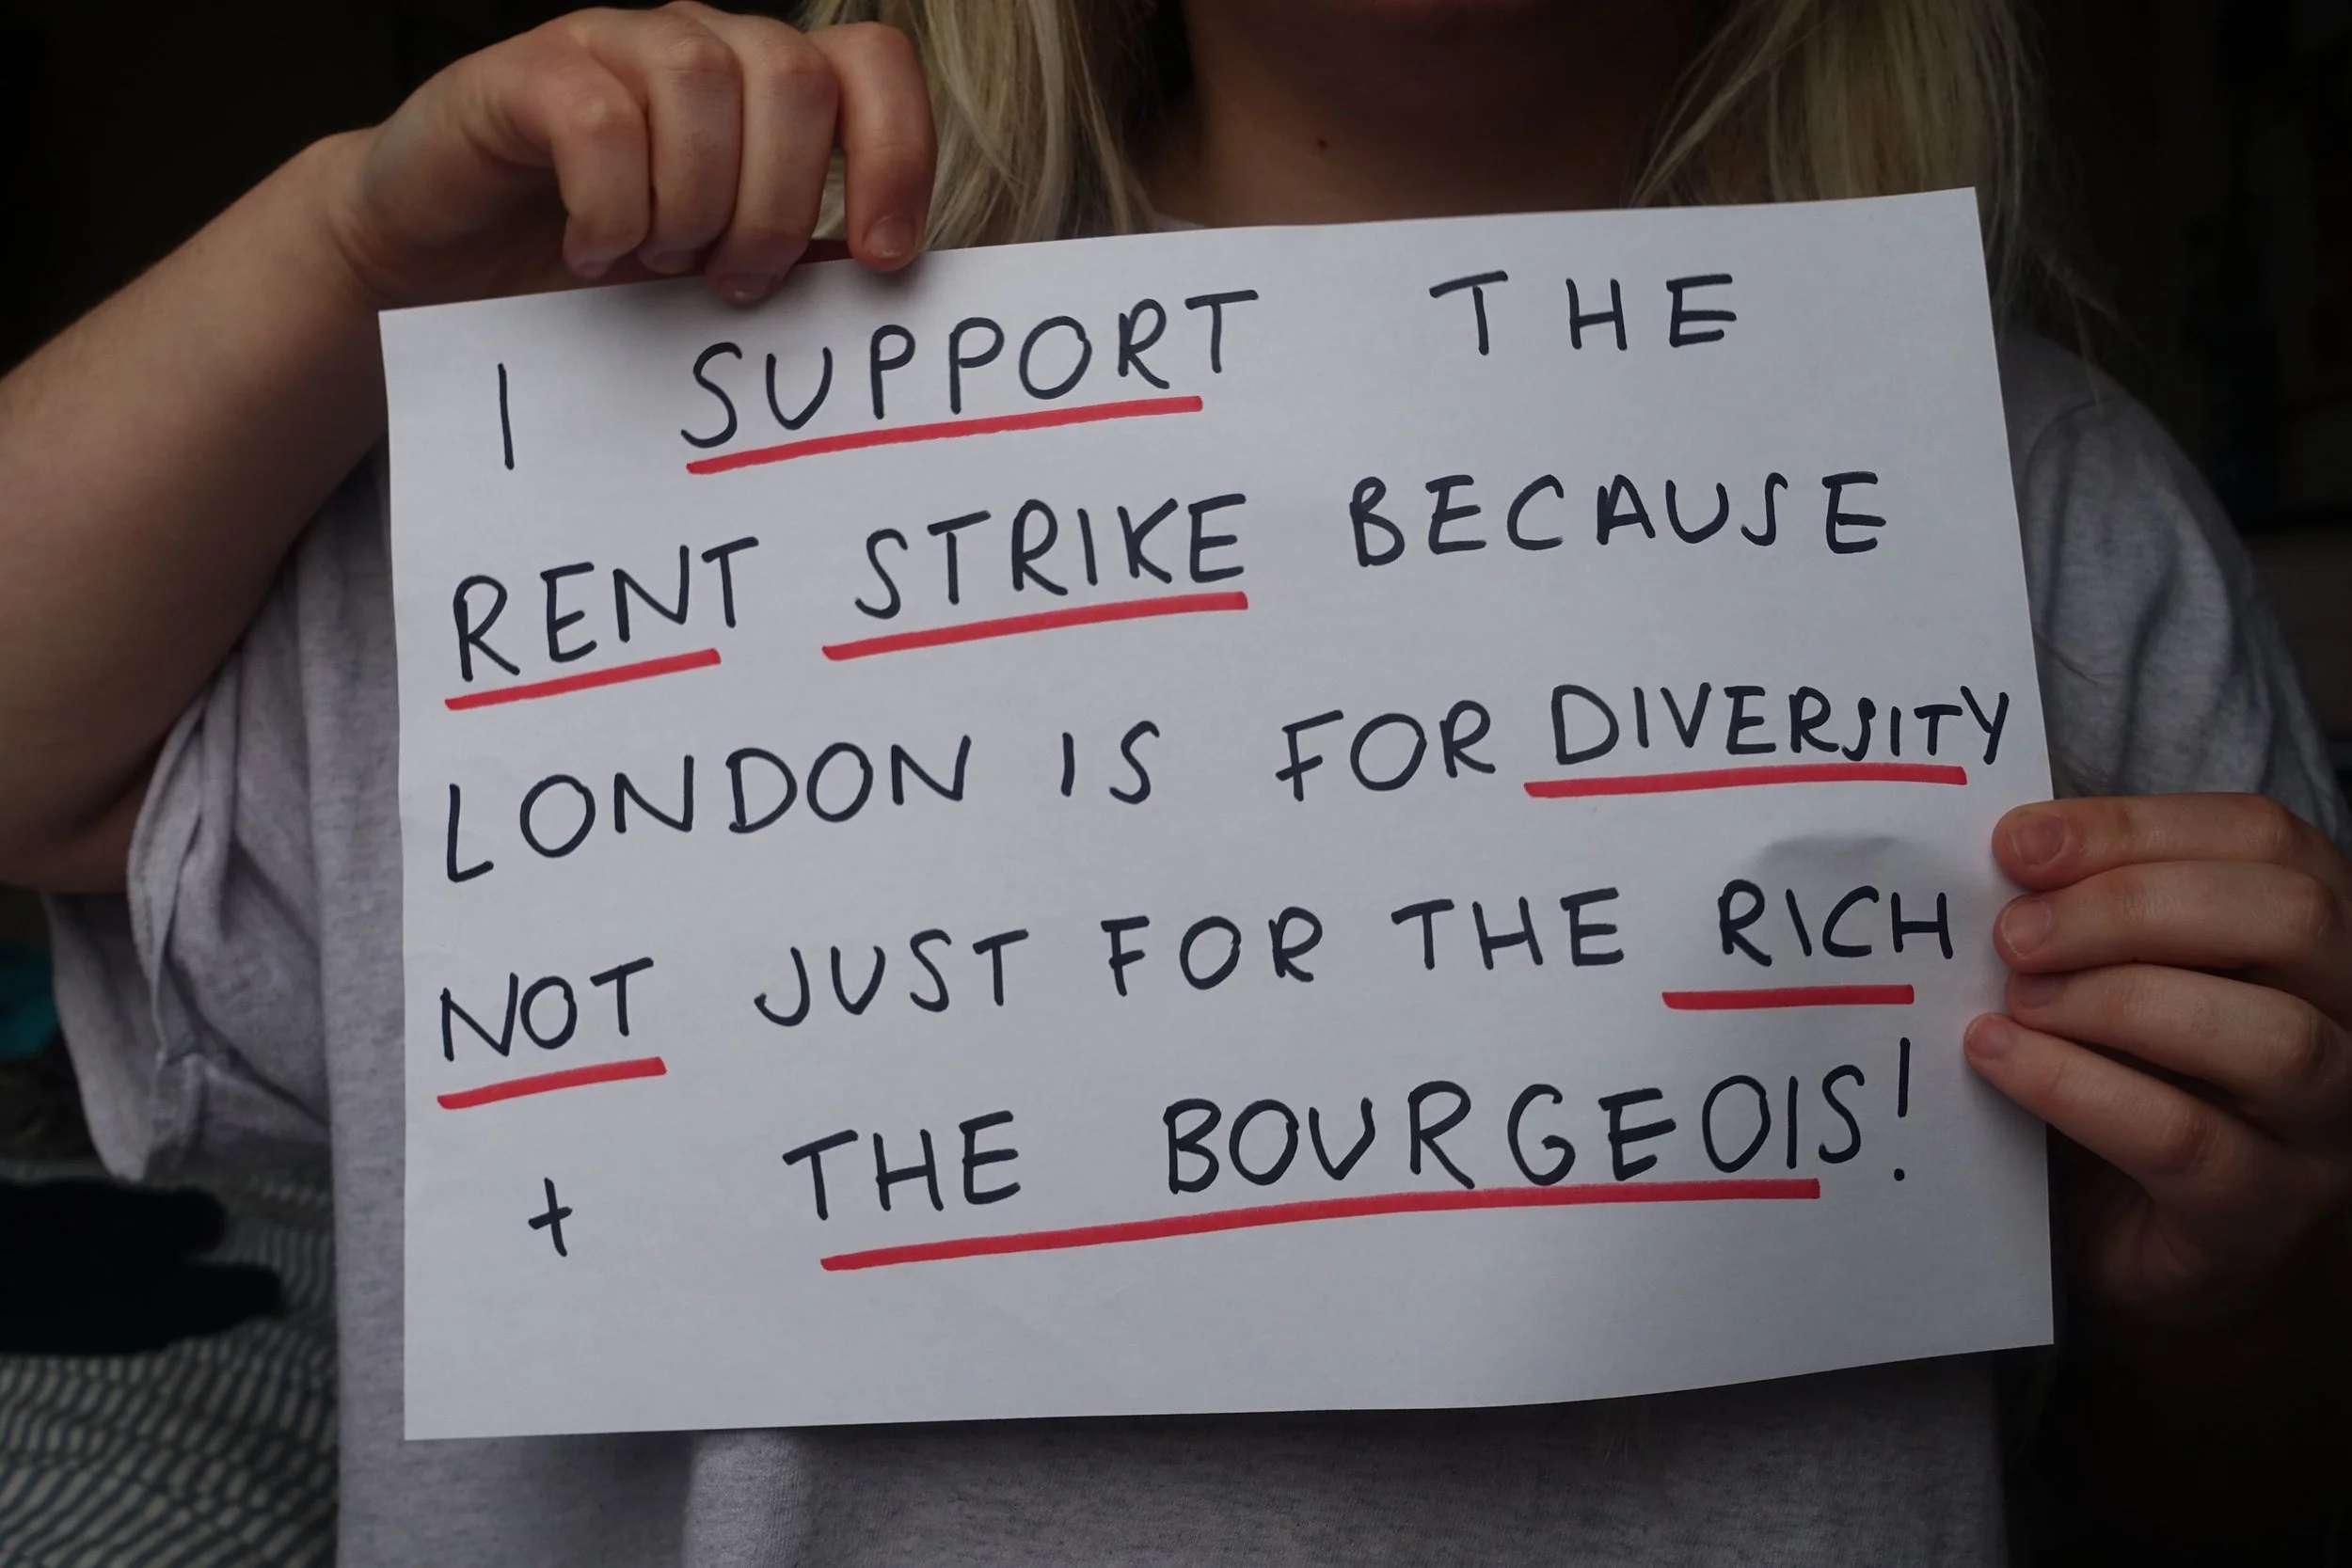 I SUPPORT THE
RENT STRIKE BECAUSE
LONDON IS FOR DIVERSITY
NOT JUST FOR THE RICH
+ THE BOURGEOIS!